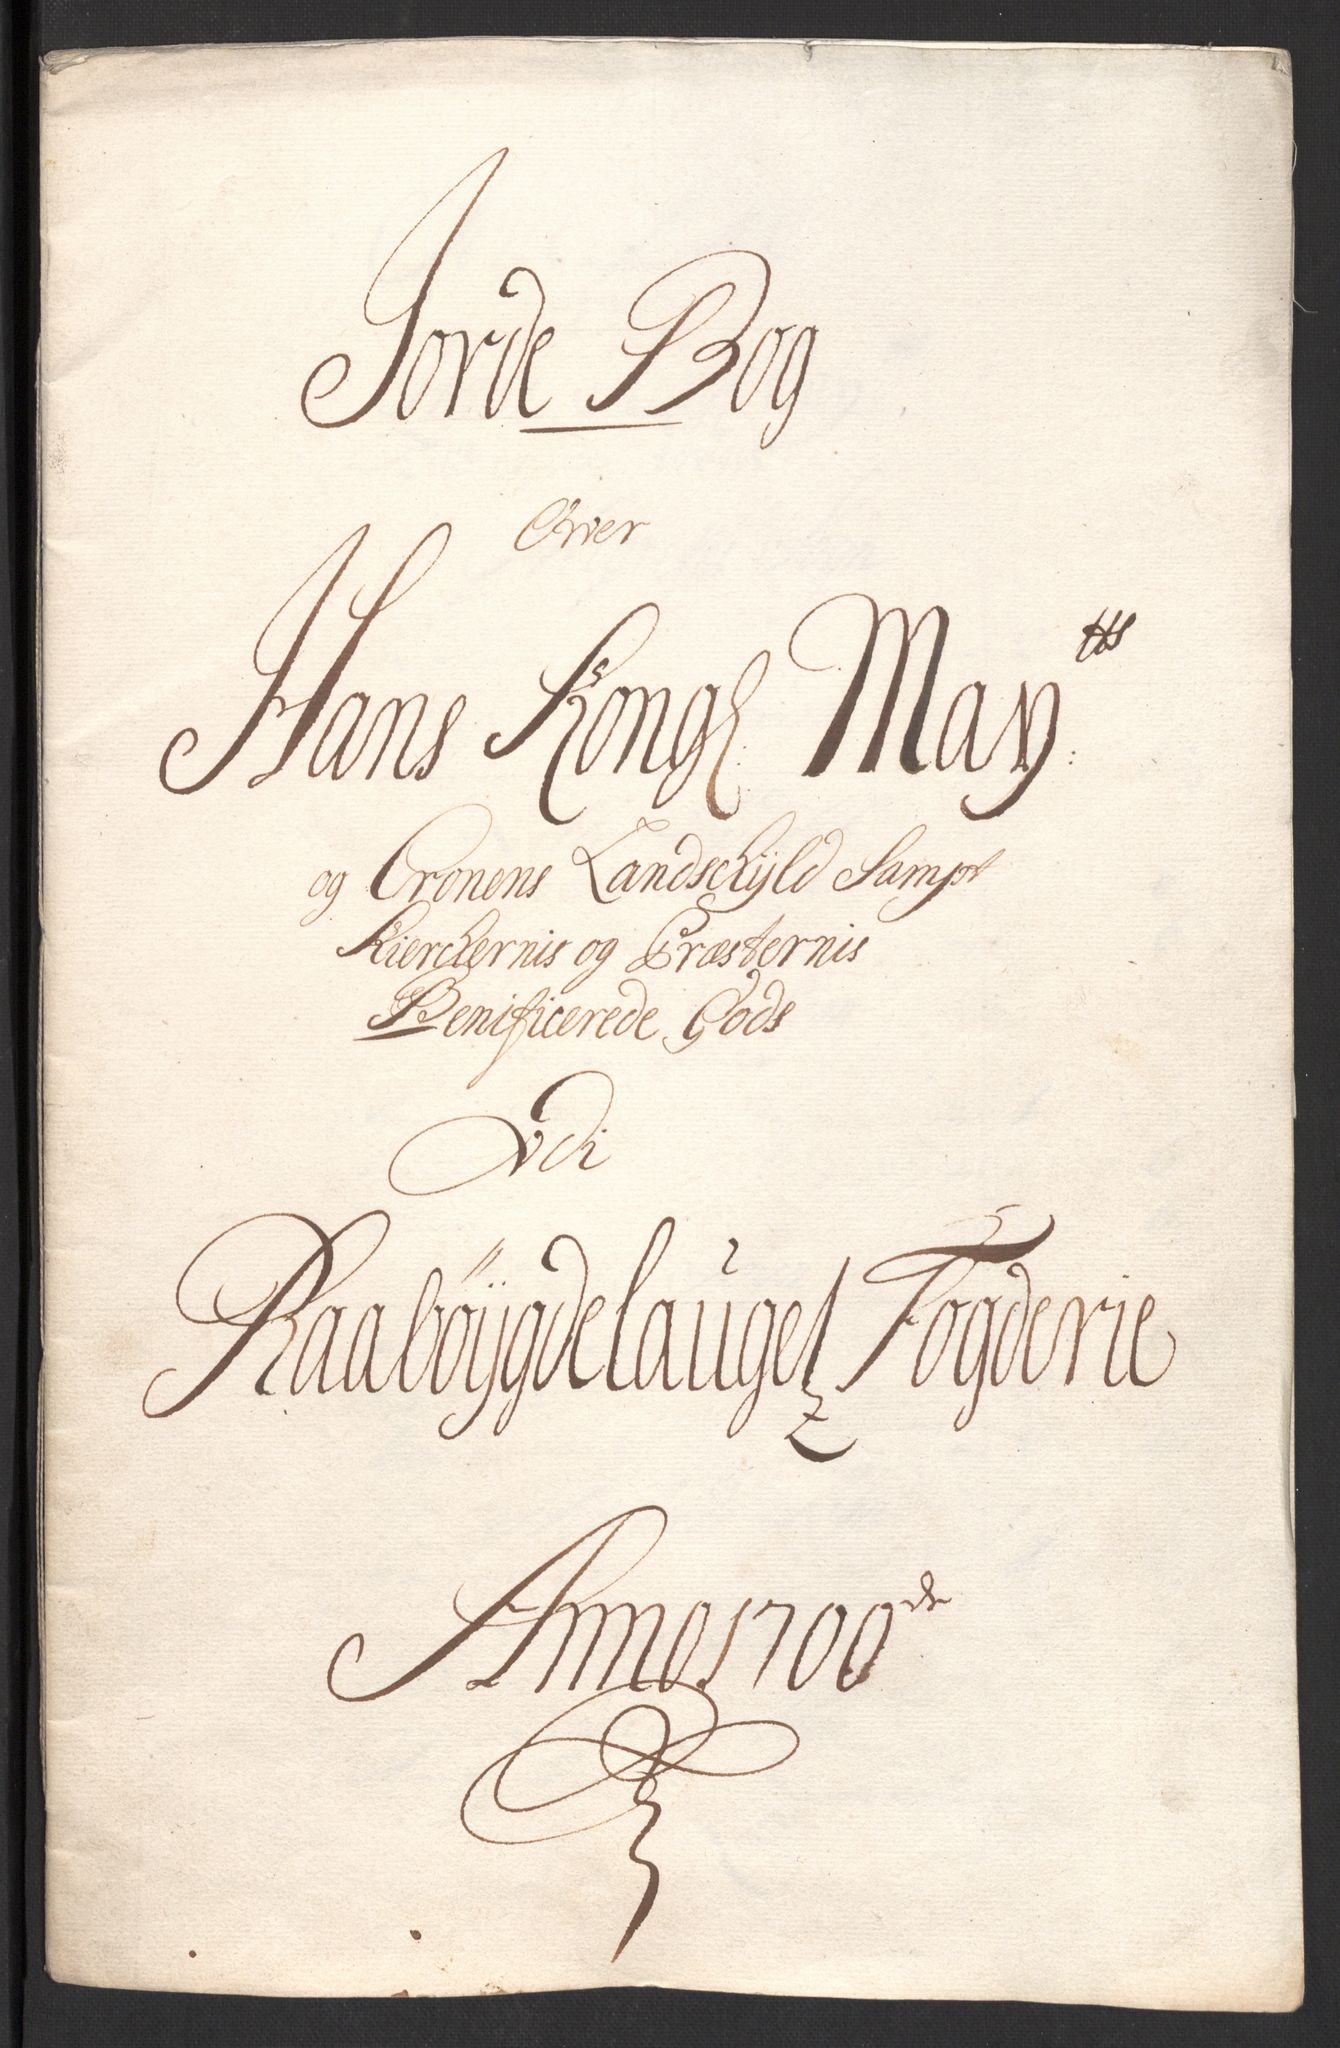 Jorde Bog
Over
Hans Kongl. May:tts
og Cronens Landschÿld Sampt
Kierchernis og Præsternis
Benificerede Gods
Vdi
Raaböÿgdelauget Fogderie
Anno 1700de